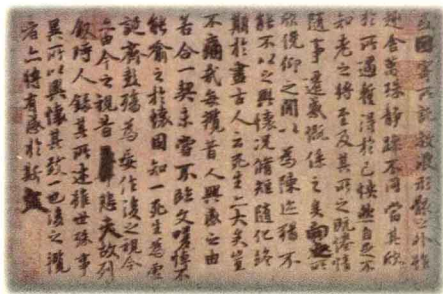 因寄所託放浪形骸之外雖
趣舍萬殊靜躁不同當其欣
於所遇蹔得於己怏然自足不
知老之將至及其所之既惓情
隨事遷感慨係之矣向之所
欣俛仰之閒以為陳迹猶不
能不以之興懷況脩短隨化終
期於盡古人云死生亦大矣豈
不痛哉每攬昔人興感之由
若合一契未嘗不臨文嗟悼不
能喻之於懷固知一死生為虛
誕齊彭殤為妄作後之視今
亦由今之視昔悲夫故列
敘時人錄其所述雖世殊事
異所以興懷其致一也後之攬
者亦將有感於斯文